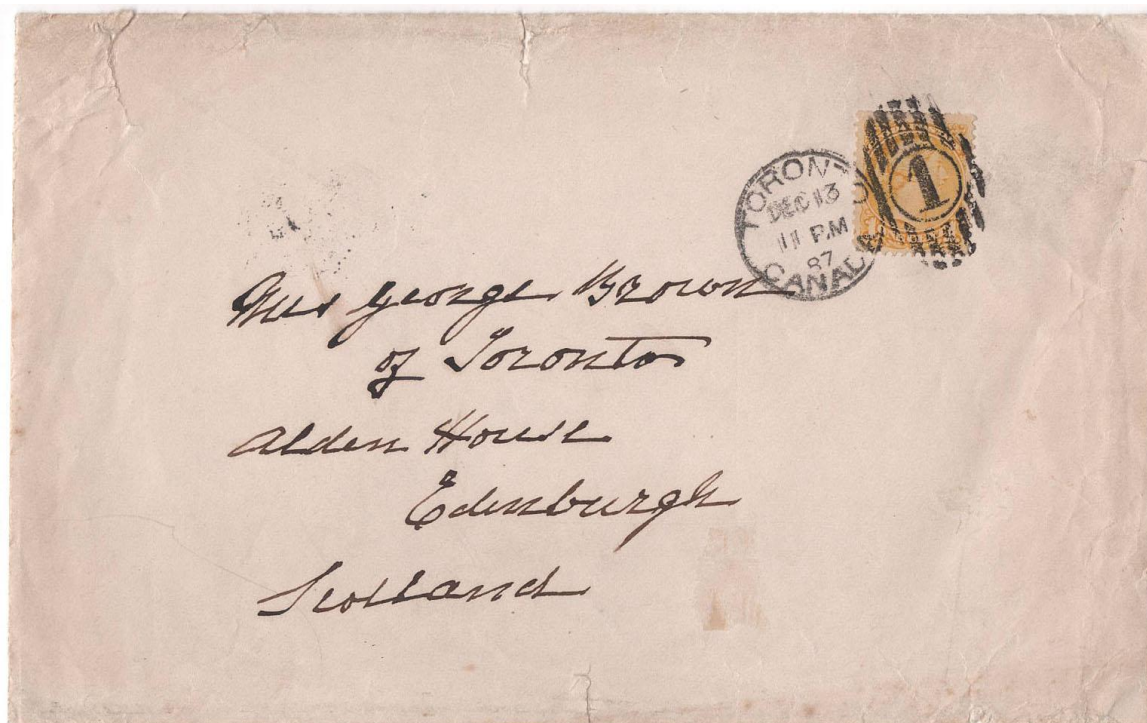 TORONTO
DEC 13
11 PM
87
CANADA
1
Mrs George Brown
of Toronto
Alden House
Edinburgh
Scotland